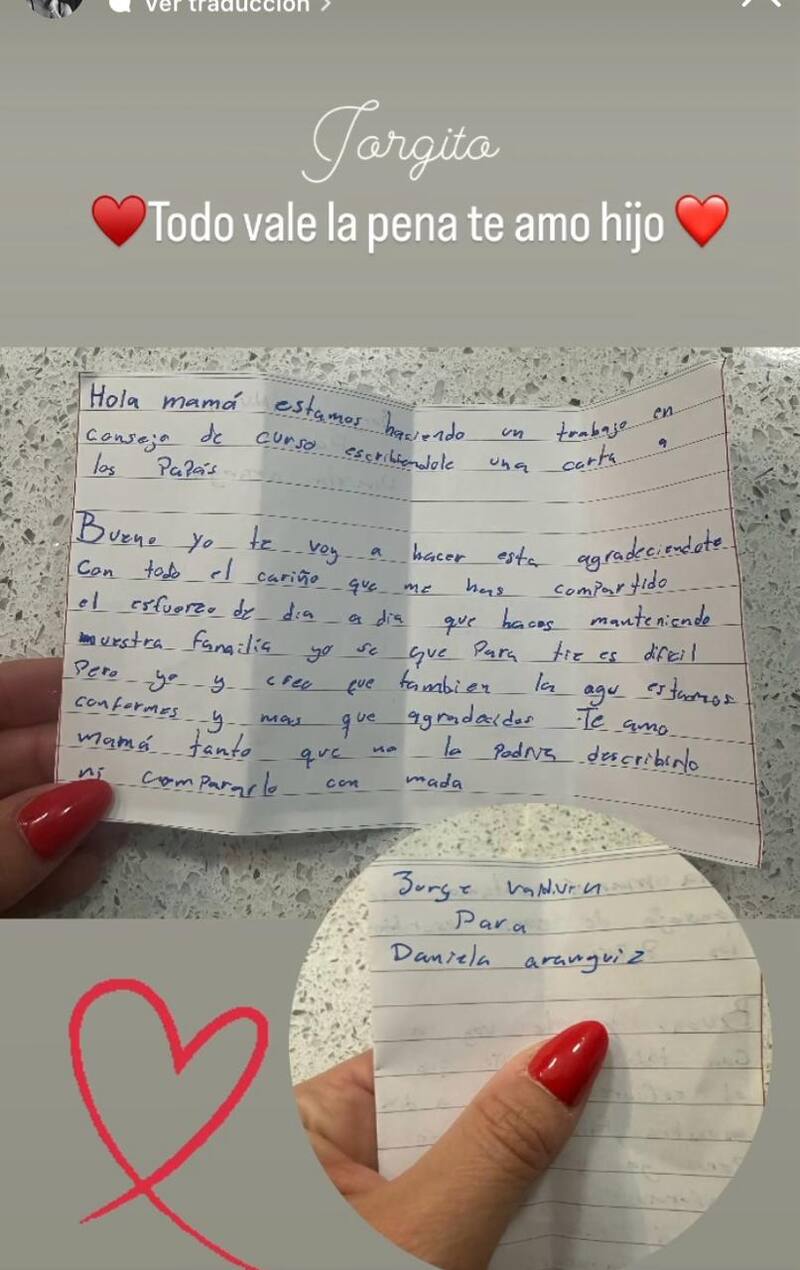 Ver traducción >
Jorgito
Todo vale la pena te amo hijo
Hola mamá estamos haciendo un trabajo en
consejo de curso escribiendole una carta a
los Papás
Bueno yo te voy a hacer esta agradeciendote
Con todo el cariño que me has compartido
el esfuerzo de dia a dia que haces manteniendo
nuestra familia yo se que Para tiz es dificil
Pero yo y creo que tambien la agu estamos
conformes y mas que agradecidos Te amo
mamá tanto que no lo Podria describirlo
ni compararlo con mada
Jorge
Para
Daniela aranguiz